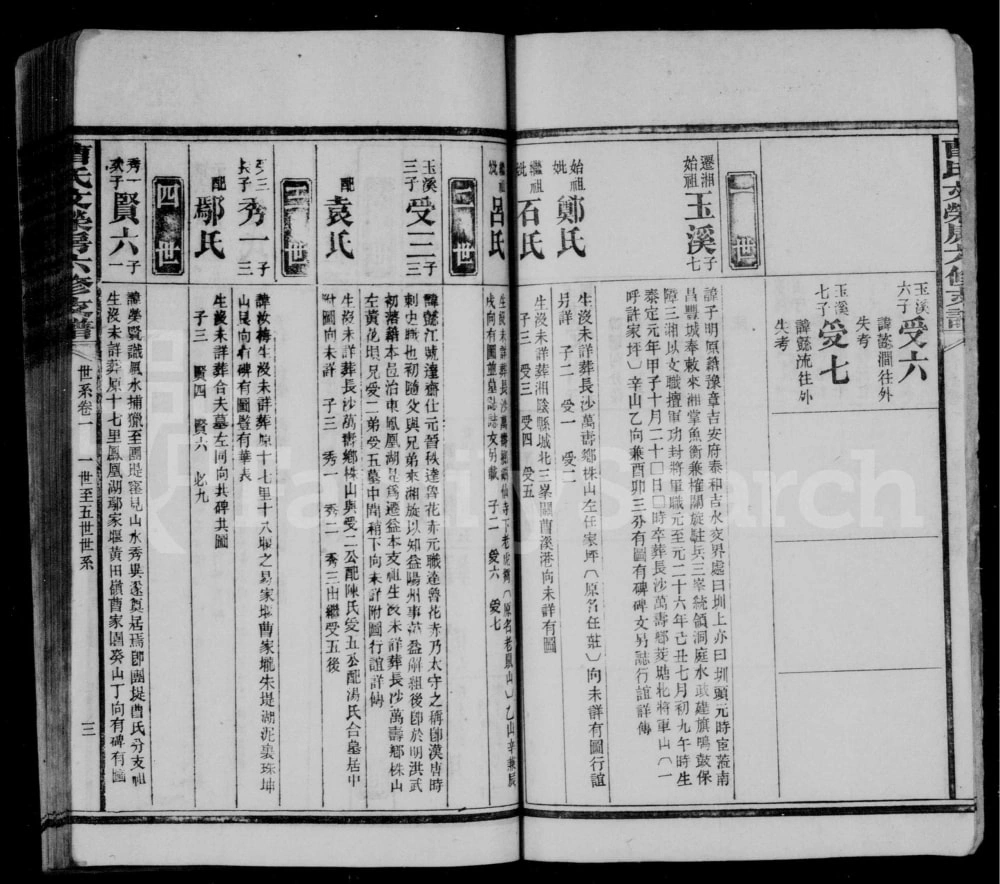 曹氏文榮房六修支譜
玉溪
六子
受六
諱懿澗往外
失考
玉溪
七子
受七
諱懿流往外
失考
一世
遷湘
始祖
玉溪
子
七
諱子明原籍豫章吉安府泰和吉水交界處曰圳上亦曰圳頭元時宦蒞南
昌豐城奉敕來湘掌魚衡兼榷關旋駐兵三峯統領洞庭水
障三湘以文職擅軍功封將軍職元至元二十六年己丑七月初九午時生
泰定元年甲子十月二十□日□時卒葬長沙萬壽鄉菱塘
將軍山(一
呼許家坪)辛山乙向兼酉卯三分有圖有碑碑文另誌行誼詳傳
始祖
妣
鄭氏
生沒未詳葬長沙萬壽鄉株山左任家坪(原名任莊)向未詳有圖行誼
另詳 子二 受一 受二
繼祖
妣
石氏
生沒未詳葬湘陰縣城北三峯關曹溪港向未詳有圖
子三 受三 受四 受五
繼祖
妣
呂氏
生沒未詳葬長沙萬壽
戌向有圖
墓誌誌文另載 子二 受六 受七
二世
玉溪
三子
受三
子
三
諱懿江號達齋仕元晉秩達魯花赤元職達魯花赤乃太守之稱卽漢唐時
刺史職也初隨父與兄弟來湘旋以知益陽州事
解組後卽於明洪武
初落籍本邑治東鳳凰湖是爲遷益本支祖生沒未詳葬長沙萬壽鄉株山
左黃花
兄受二弟受五墓中間稍下向未詳附圖行誼詳傳
配
袁氏
生沒未詳葬長沙萬壽鄉株山與受二公配陳氏受五公配湯氏合墓居中
附圖向未詳 子三 秀一 秀二 秀三出繼受五後
三世
受三
長子
秀一
子
三
諱汝梅生沒未詳葬原十七里十八堰之易家堰曹家壠朱堤湖泥裏珠坤
山艮向有碑有圖豎有華表
配
鄢氏
生沒未詳葬合夫墓左同向共碑共圖
子三 賢四 賢六 必九
四世
秀一
次子
賢六
子
一
諱榮賢識風水捕獵至團堤窰見山水秀異遂奠居焉卽團堤曹氏分支祖
生沒未詳葬原十七里鳳凰湖鄢家堰黃田嶺曹家園癸山丁向有碑有圖
曹氏文榮房六修支譜
世系卷一 一世至五世世系
三
FamilySearch